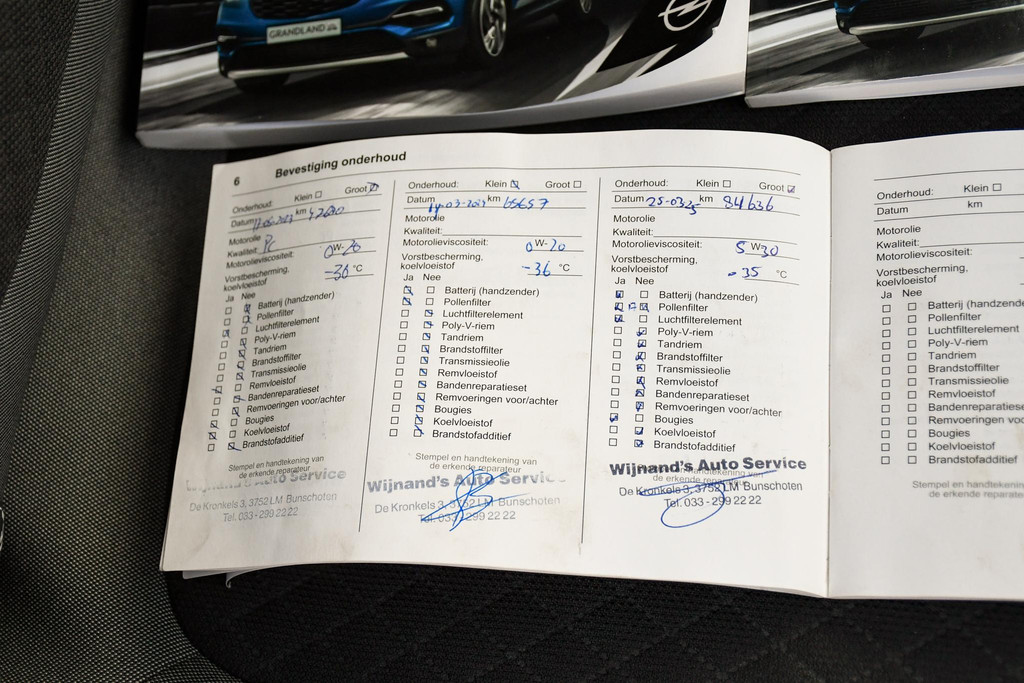 GRANDLAND
6 Bevestiging onderhoud
Onderhoud: Klein ☐ Groot ☑
Datum km
Motorolie
Kwaliteit:
Motorolieviscositeit: 0W-20
Vorstbescherming,
koelvloeistof -36 °C
Ja Nee
Batterij (handzender)
Pollenfilter
Luchtfilterelement
Poly-V-riem
Tandriem
Brandstoffilter
Transmissieolie
Remvloeistof
Bandenreparatieset
Remvoeringen voor/achter
Bougies
Koelvloeistof
Brandstofadditief
Stempel en handtekening van
de erkende reparateur
Wijnand's Auto Service
De Kronkels 3, 3752 LM Bunschoten
Tel. 033 - 299 22 22
Onderhoud: Klein ☑ Groot ☐
Datum km 65657
Motorolie
Kwaliteit:
Motorolieviscositeit: 0W-20
Vorstbescherming,
koelvloeistof -36 °C
Ja Nee
Batterij (handzender)
Pollenfilter
Luchtfilterelement
Poly-V-riem
Tandriem
Brandstoffilter
Transmissieolie
Remvloeistof
Bandenreparatieset
Remvoeringen voor/achter
Bougies
Koelvloeistof
Brandstofadditief
Stempel en handtekening van
de erkende reparateur
Wijnand's Auto Service
De Kronkels 3, 3752 LM Bunschoten
Tel. 033 - 299 22 22
Onderhoud: Klein ☐ Groot ☑
Datum 25-03-25 km 84636
Motorolie
Kwaliteit:
Motorolieviscositeit: 5W30
Vorstbescherming,
koelvloeistof -35 °C
Ja Nee
Batterij (handzender)
Pollenfilter
Luchtfilterelement
Poly-V-riem
Tandriem
Brandstoffilter
Transmissieolie
Remvloeistof
Bandenreparatieset
Remvoeringen voor/achter
Bougies
Koelvloeistof
Brandstofadditief
Stempel en handtekening van
de erkende reparateur
Wijnand's Auto Service
De Kronkels 3, 3752 LM Bunschoten
Tel. 033 - 299 22 22
Onderhoud: Klein ☐
Datum km
Motorolie
Kwaliteit:
Motorolieviscositeit:
Vorstbescherming,
koelvloeistof
Ja Nee
Batterij (handzende
Pollenfilter
Luchtfilterelement
Poly-V-riem
Tandriem
Brandstoffilter
Transmissieolie
Remvloeistof
Bandenreparatiese
Remvoeringen voo
Bougies
Koelvloeistof
Brandstofadditief
Stempel en handteken
de erkende reparate